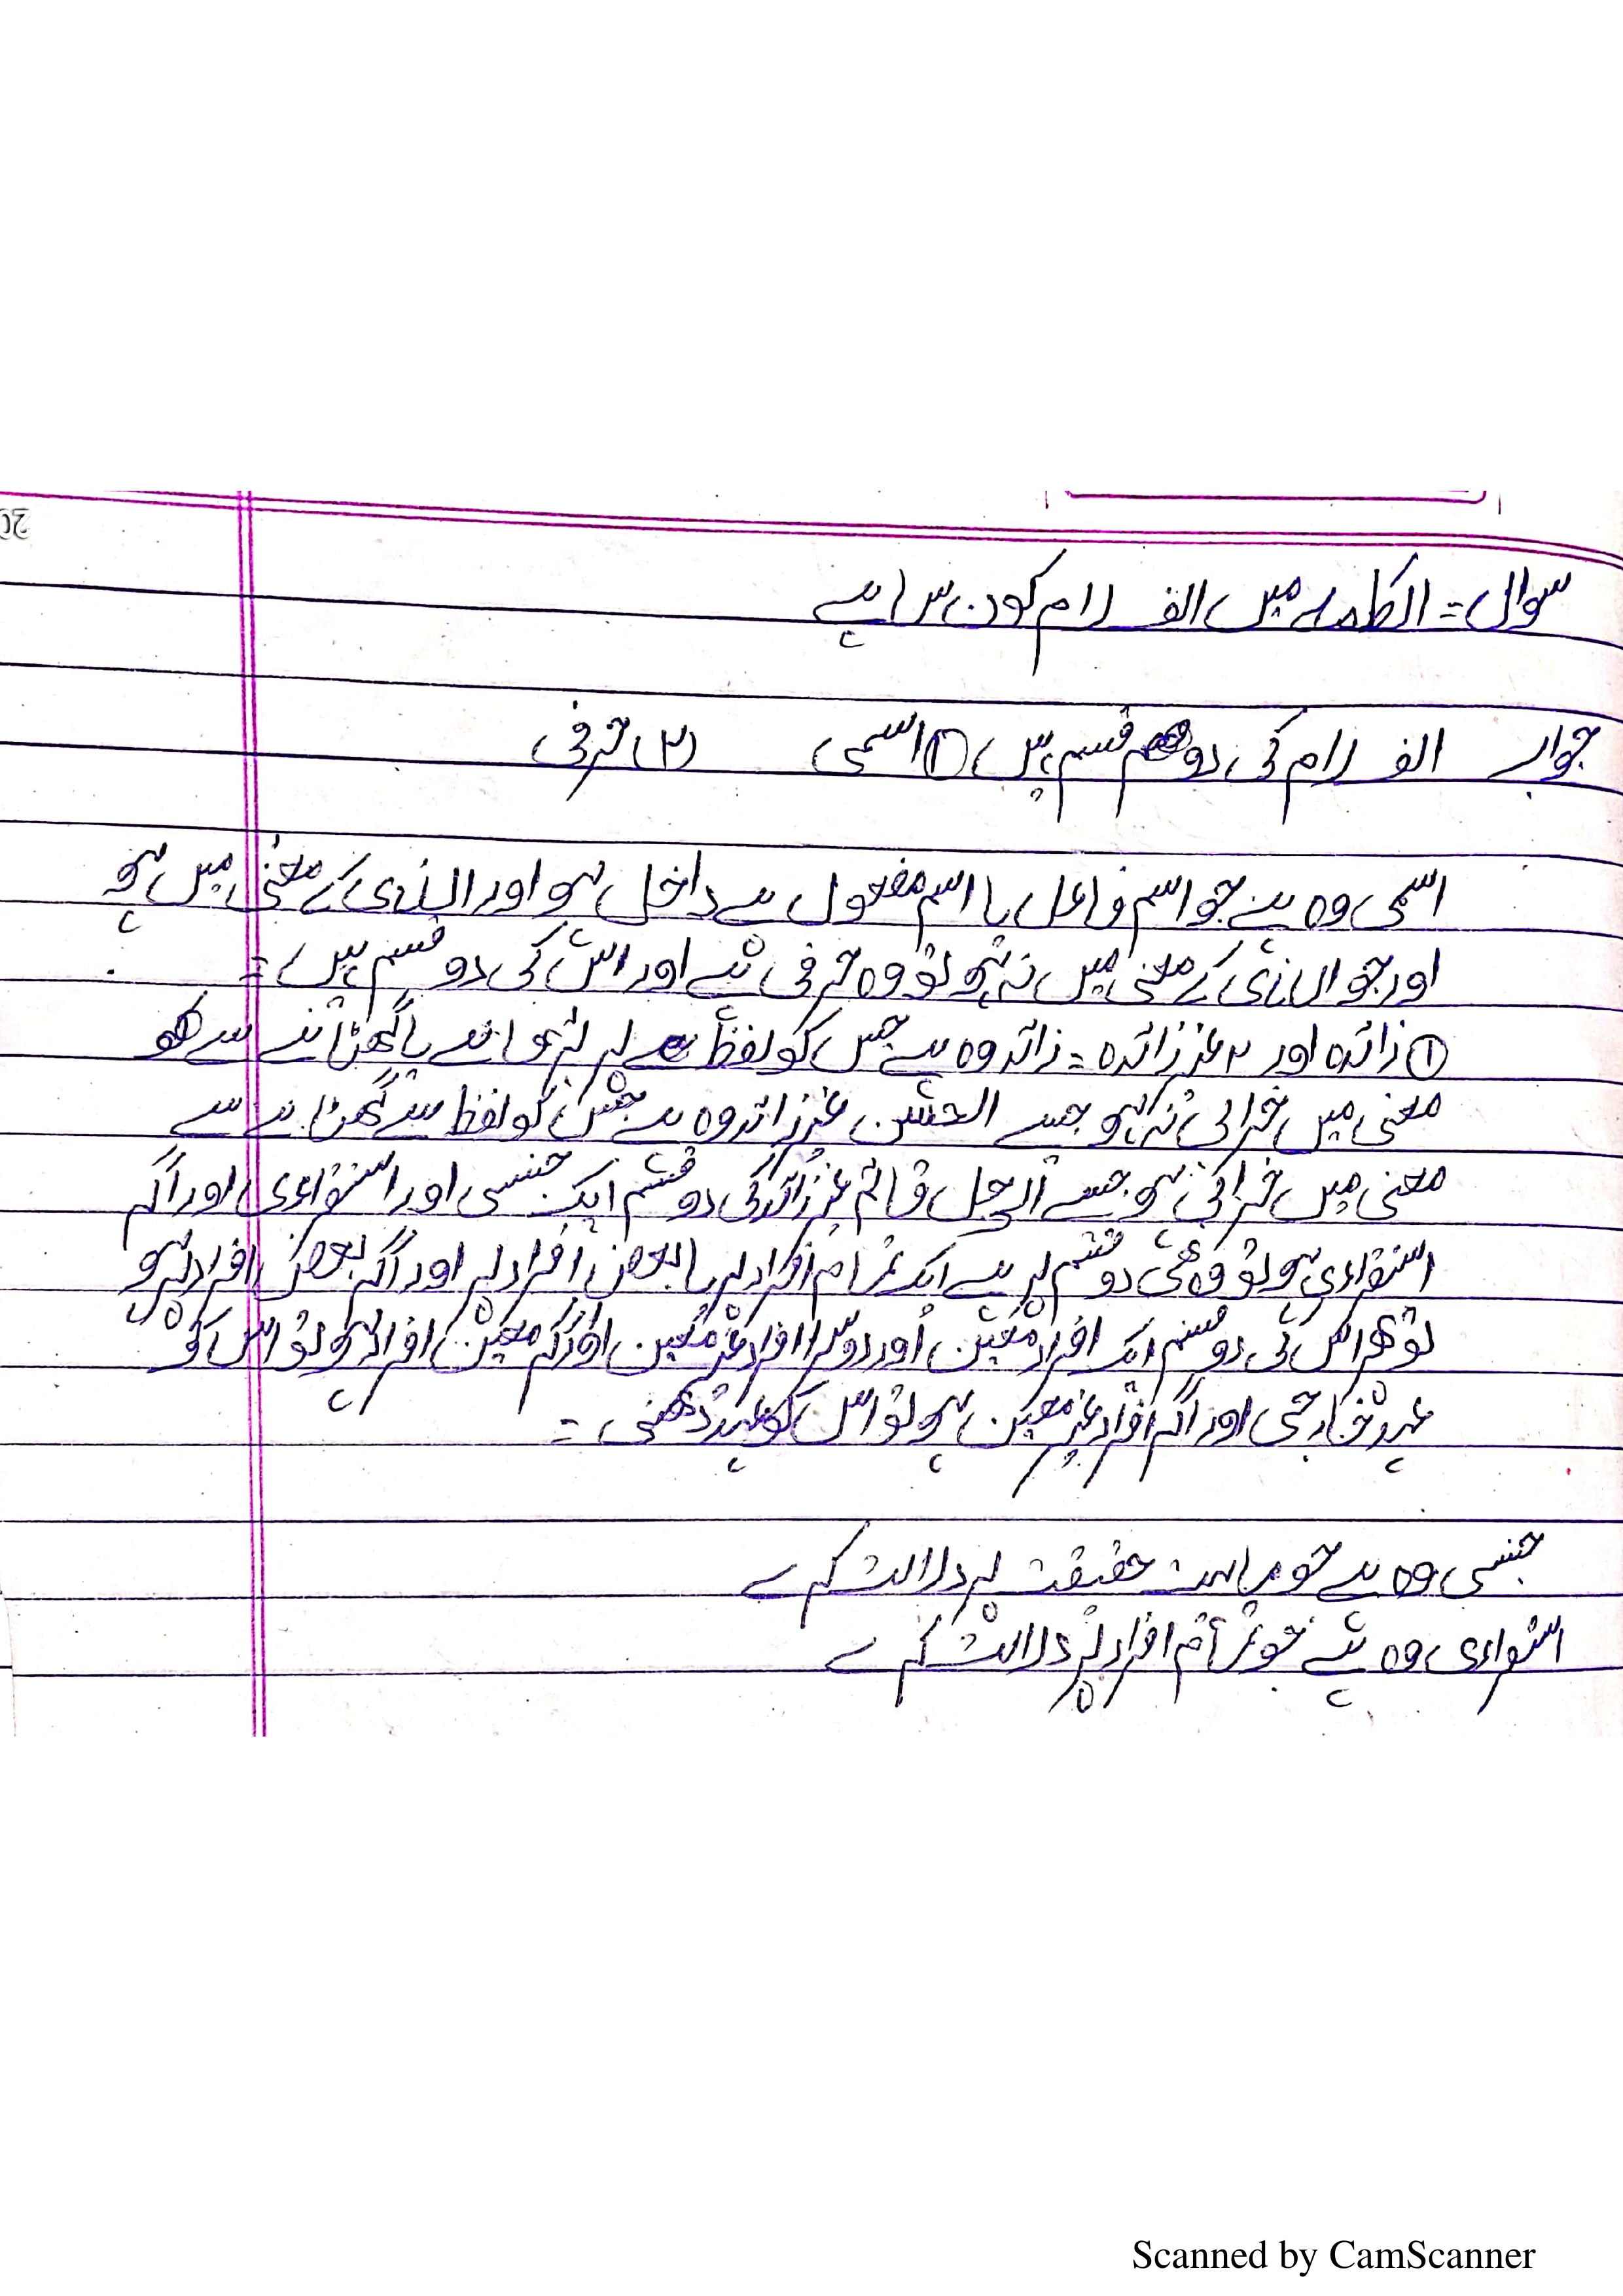 سوال = الکلمہ میں الف لام کون سا ہے
جواب الف لام کی دو قسم ہیں ① اسمی (۲) حرفی
اسمی وہ ہے جو اسم فاعل یا اسم مفعول پے داخل ہو اور الذی کے معنی میں ہو
اور جو الذی کے معنی میں نہ ہو تو وہ حرفی ہے اور اس کی دو قسم ہیں =
① زائدہ اور ۲ غیر زائدہ = زائد وہ ہے جس کو لفظ پر بڑھانے یا گھٹانے سے
معنی میں خرابی نہ ہو جیسے الحسن غیر زائد وہ ہے جس کو لفظ سے گھٹانے سے
معنی میں خرابی ہو جیسے الرجل قائم غیر زائد کی دو قسم ایک جنسی اور استغراقی اور اگر
استغراقی ہو تو وہ بھی دو قسم پر ہے ایک تمام افراد پر یا بعض افراد پر اور اگر بعض افراد پر ہو
تو پھر اس کی دو قسم ایک افراد معین اور دوسرا افراد غیر معین اور اگر معین افراد ہو تو اس کو
عہد خارجی اور اگر افراد غیر معین ہو تو اس کو عہد ذھنی =
جنسی وہ ہے جو ماہیت حقیقت پر دلالت کرے
استغراقی وہ ہے جو تمام افراد پر دلالت کرے
Scanned by CamScanner